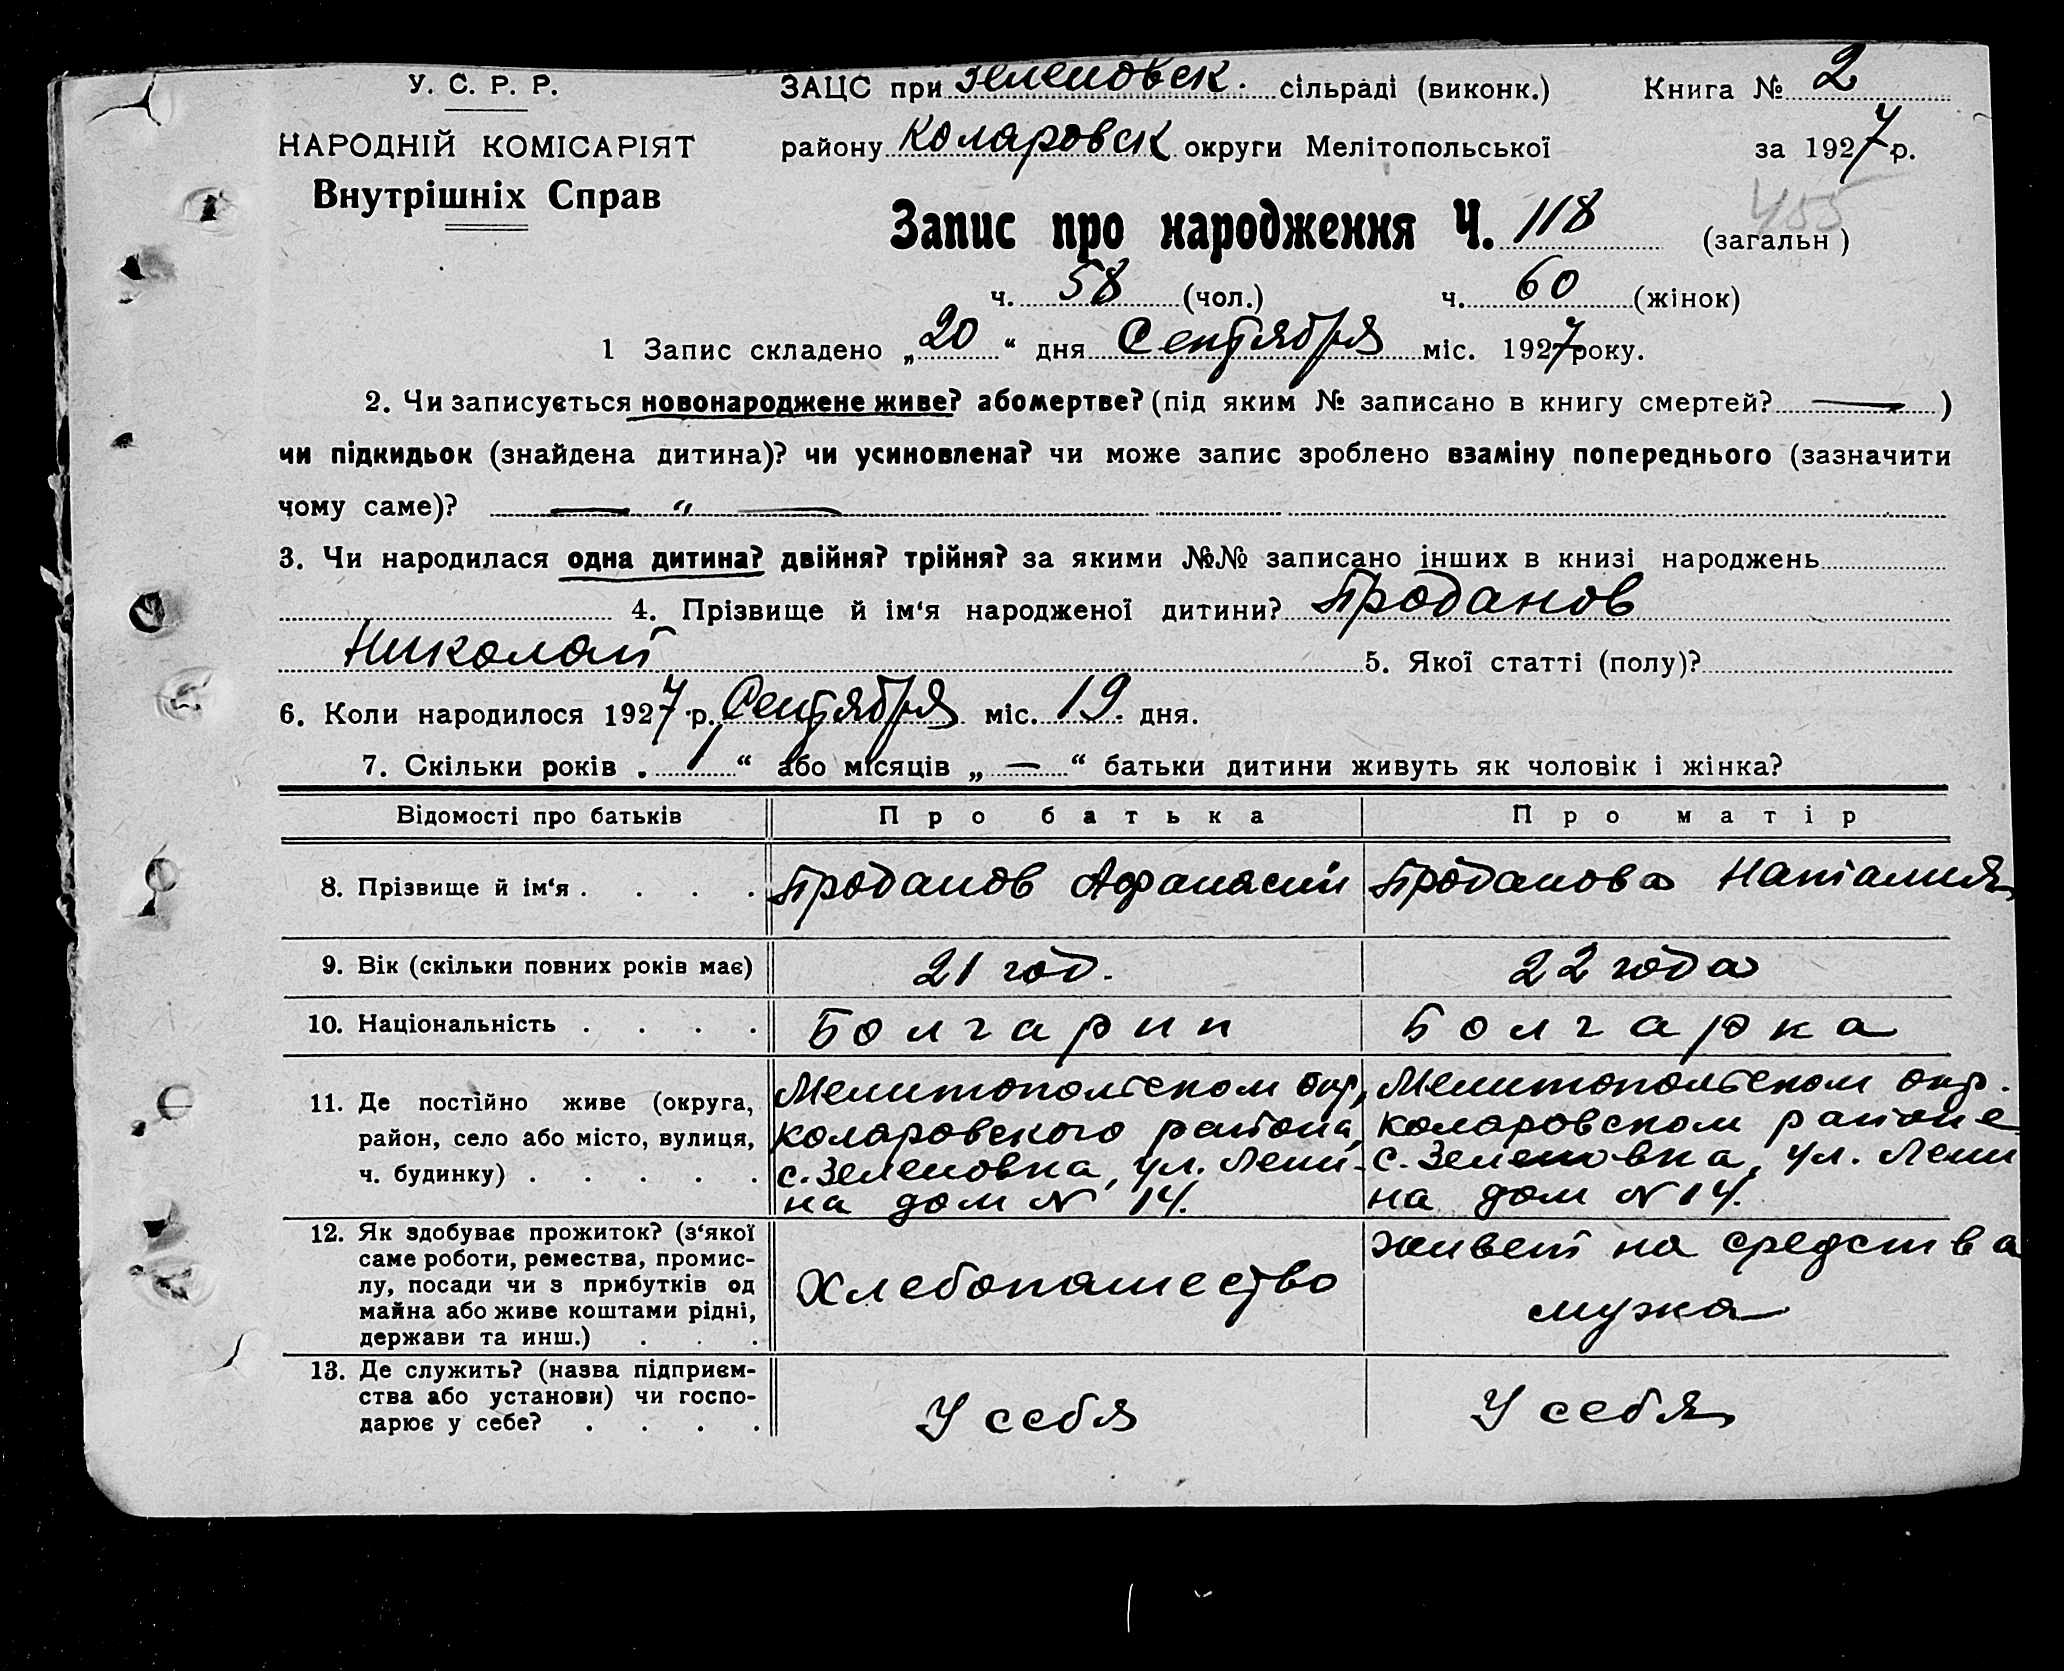 У. С. Р. Р.
НАРОДНІЙ КОМІСАРІЯТ
Внутрішніх Справ
ЗАЦС при Зеленовск. сільраді (виконк.) Книга № 2
району Коларовск округи Мелітопольської за 1927 р.
Запис про народження Ч. 118 (загальн )
455
ч. 58 (чол.) ч. 60 (жінок)
1 Запис складено „20“ дня Сентября міс. 1927 року.
2. Чи записується новонароджене живе? або мертве? (під яким № записано в книгу смертей? — )
чи підкидьок (знайдена дитина)? чи усиновлена? чи може запис зроблено взаміну попереднього (зазначити
чому саме)? — “ —
3. Чи народилася одна дитина? двійня? трійня? за якими №№ записано інших в книзі народжень
4. Прізвище й ім‘я народженої дитини? Проданов
Николай 5. Якої статті (полу)?
6. Коли народилося 1927 р. Сентября міс. 19 дня.
7. Скільки років „1“ або місяців „—“ батьки дитини живуть як чоловік і жінка?
Відомості про батьків Про батька Про матір
8. Прізвище й ім‘я . . . . Проданов Афанасий Проданова Наталия
9. Вік (скільки повних років має) 21 год. 22 года
10. Національність . . . . Болгарин Болгарка
11. Де постійно живе (округа,
район, село або місто, вулиця,
ч. будинку) . . . . .
Мелитопольском окр,
Коларовского района,
с. Зеленовка, ул. Лени-
на дом N 14.
Мелитопольском окр.
Коларовском районе
с. Зеленовка, ул. Лени
на дом N 14.
12. Як здобуває прожиток? (з‘якої
саме роботи, ремества, промис-
лу, посади чи з прибутків од
майна або живе коштами рідні,
держави та инш.) . . .
Хлебопашество
живет на средства
мужа
13. Де служить? (назва підприєм-
ства або установи) чи госпо-
дарює у себе? . . . .
У себя
У себя